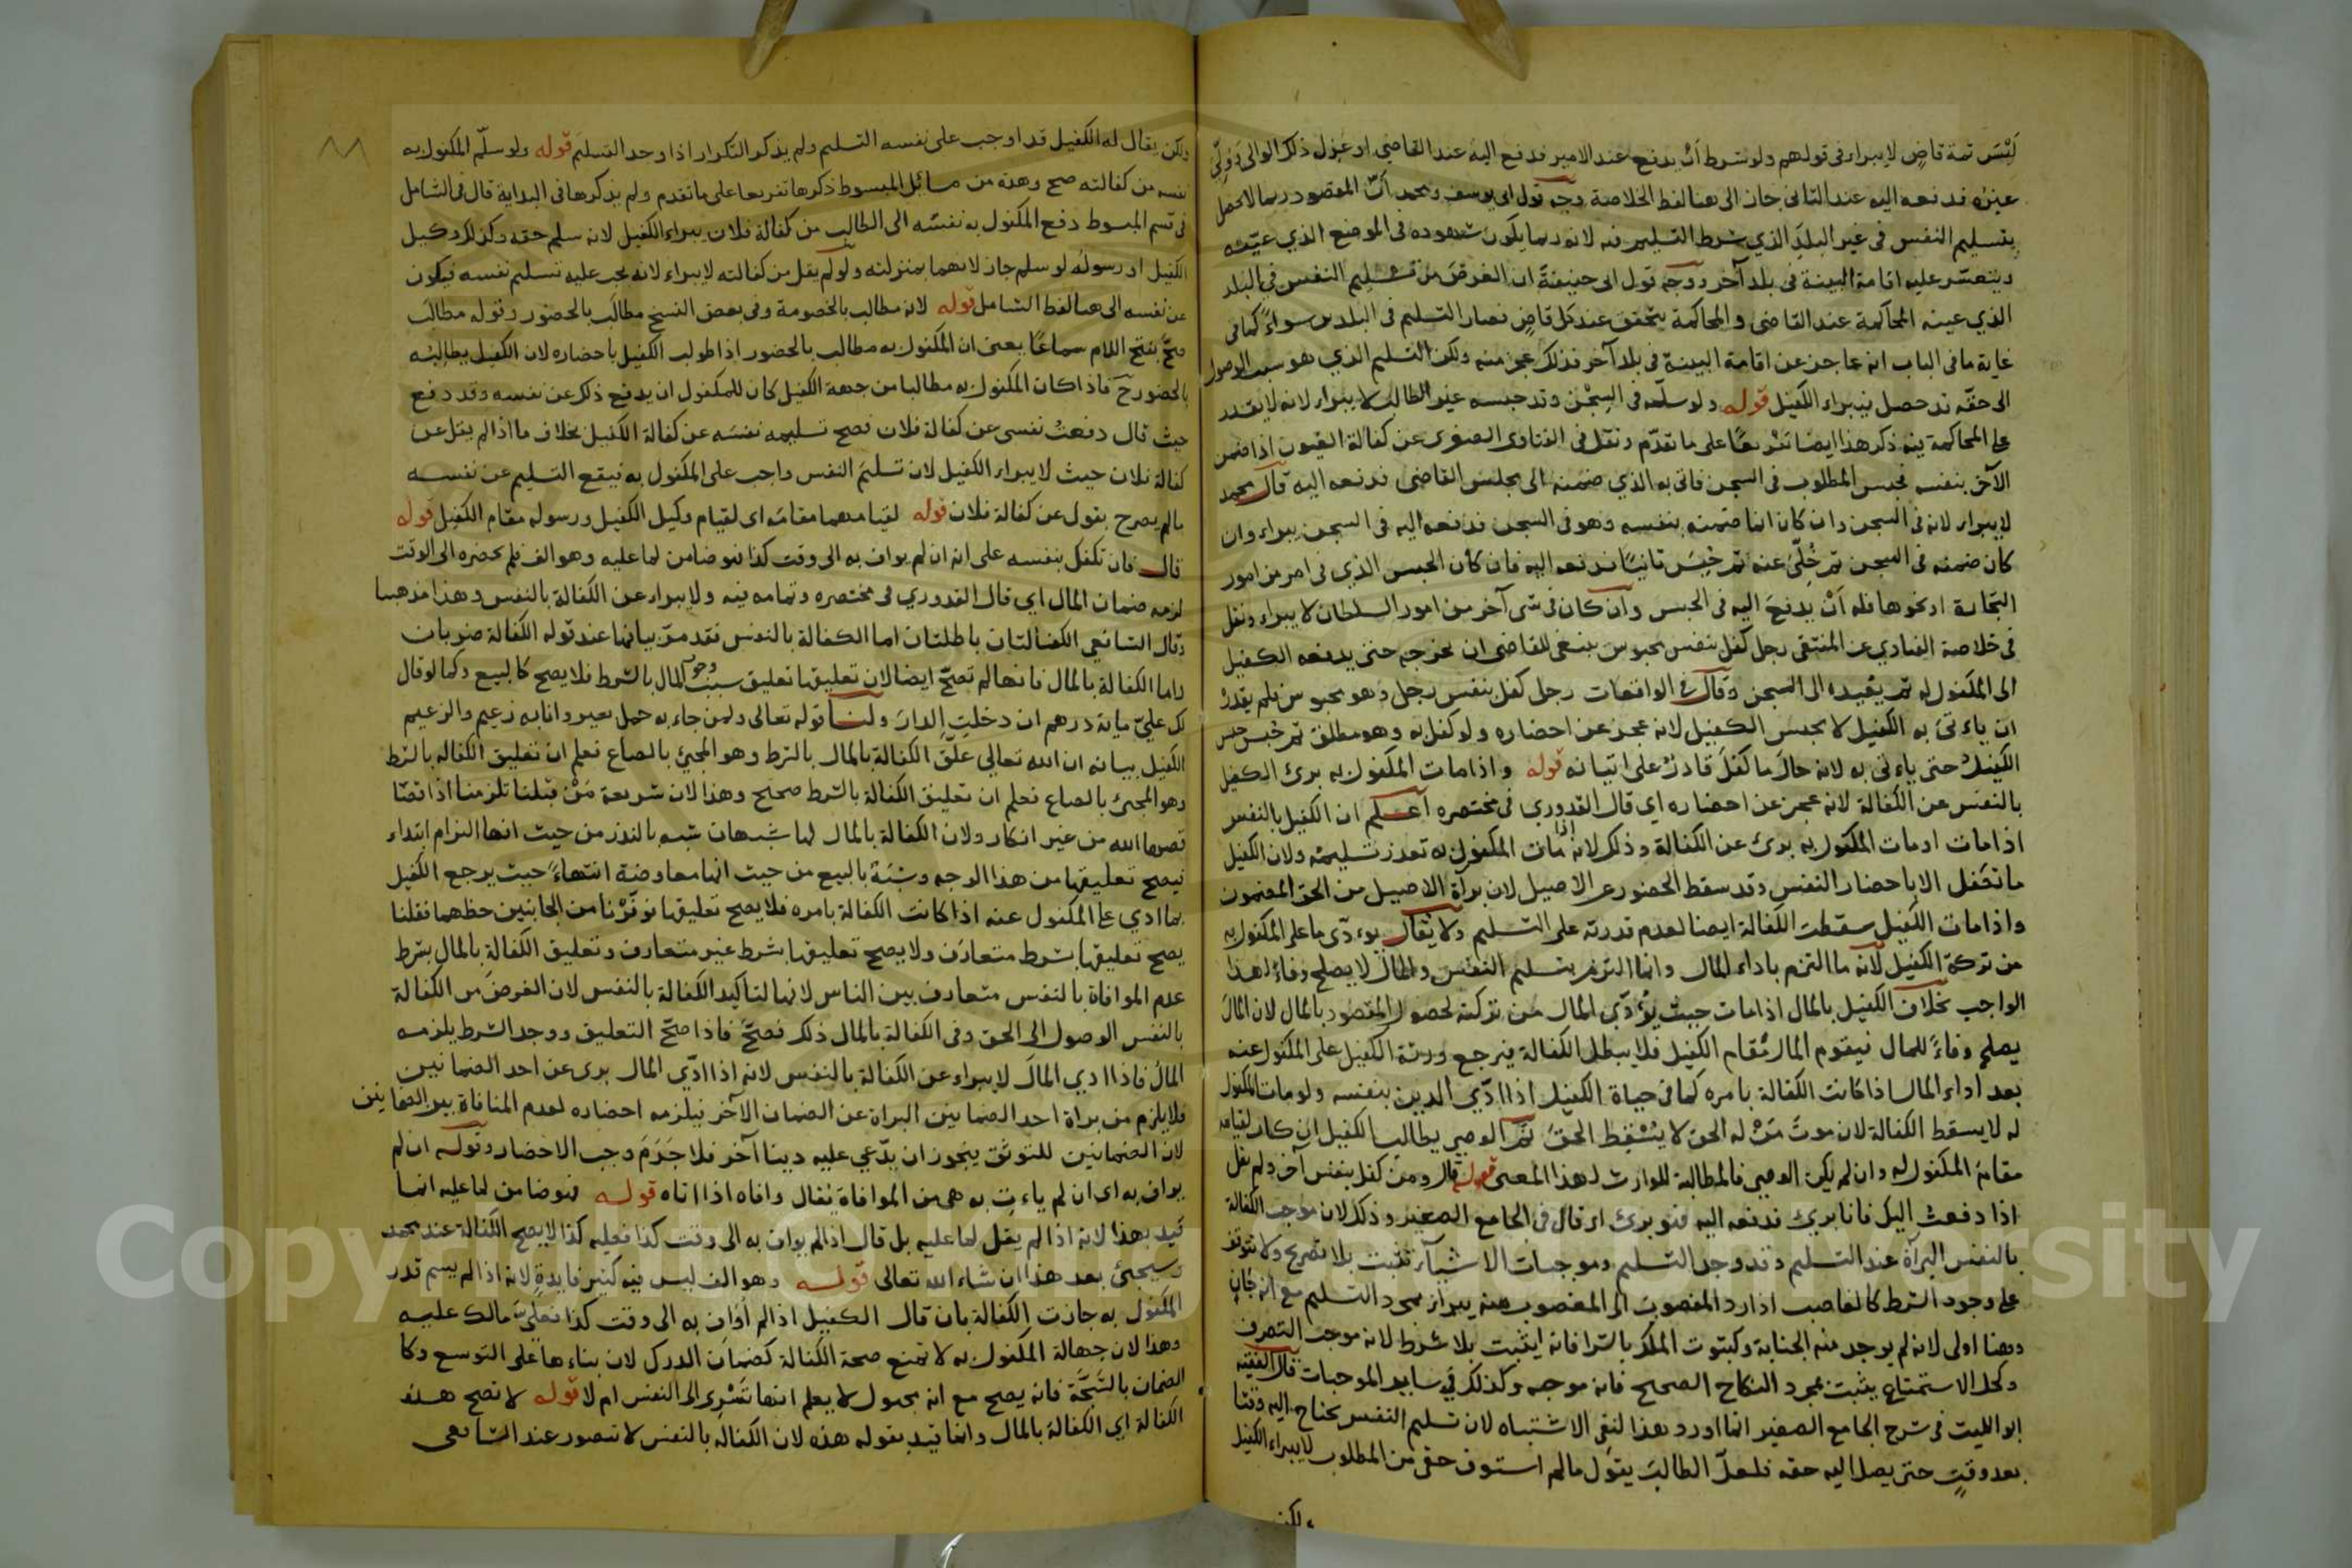 ليس ثمة قاض لا يبراء في قولهم ولو شرط أن يدفع عند الامير فدفع اليه عند القاضي او عزل ذلك الوالي وولي
غيره فدفعه اليه عند الثاني جاز الى هنا لفظ الخلاصة وجه قول ابي يوسف ومحمد أن المقصود ربما لا يحصل
بتسليم النفس في غير البلد الذي شرط التسليم فيه لانه ربما يكون شهوده في الموضع الذي عينه
ويتعسر عليه اقامة البينة في بلد آخر ووجه قول ابي حنيفة ان الغرض من تسليم النفس في البلد
الذي عينه المحاكمة عند القاضي والمحاكمة يتحقق عند كل قاض فصار التسليم في البلدين سواء كما في
غاية ما في الباب انه عاجز عن اقامة البينة في بلد آخر فذلك عجز منه ولكن التسليم الذي هو سبب الوصول
الى حقه قد حصل فيبراء الكفيل قوله ولو سلمه في السجن وقد حبسه غير الطالب لا يبراء لانه لا يقدر
على المحاكمة فيه ذكر هذا ايضا تفريعا على ما تقدم ونقل في الفتاوى الصغرى عن كفالة العيون اذا ضمن
الآخر بنفسه فحبس المطلوب في السجن فاتى به الذي ضمنه الى مجلس القاضي فدفعه اليه قال محمد
لا يبراء لانه في السجن وان كان انما ضمنه بنفسه وهو في السجن فدفعه اليه في السجن يبراء وان
كان ضمنه في السجن ثم خلى عنه ثم حبس ثانيا فدفعه اليه فان كان الحبس الذي في امر من امور
التجارة او نحوها فله أن يدفع اليه في الحبس وان كان في شى آخر من امور السلطان لا يبراء ونقل
في خلاصة الفتاوي عن المنتقى رجل كفل بنفس محبوس ينبغي للقاضي ان يخرجه حتى يدفعه الكفيل
الى المكفول له ثم يعيده الى السجن وقال في الواقعات رجل كفل بنفس رجل وهو محبوس فلم يقدر
ان ياءتى به الكفيل لا يحبس الكفيل لانه عجز عن احضاره ولو كفل به وهو مطلق ثم حبس حبس
الكفيل حتى ياءتى به لانه حال ما كفل قادر على اتيانه قوله واذا مات المكفول به برئ الكفيل
بالنفس عن الكفالة لانه عجز عن احضاره اي قال القدوري في مختصره اعلم ان الكفيل بالنفس
اذا مات او مات المكفول به برئ عن الكفالة وذلك لانه اذا مات المكفول به تعذر تسليمه ولان الكفيل
ما تكفل الا باحضار النفس وقد سقط الحضور عن الاصيل لان براة الاصيل من الحق المضمون
واذا مات الكفيل سقطت الكفالة ايضا لعدم قدرته على التسليم ولا يقال يوءدى ما على المكفول به
من تركة الكفيل لانه ما التزم باداء المال وانما التزم بتسليم النفس والمال لا يصلح وفاء لهذا
الواجب بخلاف الكفيل بالمال اذا مات حيث يؤدى المال من تركته لحصول المقصود بالمال لان المال
يصلح وفاء للمال فيقوم المال مقام الكفيل فلا يبطل الكفالة فيرجع ورثة الكفيل على المكفول عنه
بعد اداء المال اذا كانت الكفالة بامره كما في حياة الكفيل اذا ادى الدين بنفسه ولو مات المكفول
له لا يسقط الكفالة لان موت من له الحق لا يسقط الحق ثم الوصي يطالب الكفيل ان كان لقيامه
مقام المكفول له وان لم يكن الوصي فالمطالبة للوارث لهذا المعنى قوله قال ومن كفل بنفس آخر ولم يقل
اذا دفعت اليك فانا بريء فدفعه اليه فهو برئ اي قال في الجامع الصغير وذلك لان موجب الكفالة
بالنفس البرآة عند التسليم وقد وجد التسليم وموجبات الاشيآء تثبت بلا تصريح ولا يتوقف
على وجود الشرط كالغاصب اذا رد المغصوب الى المغصوب منه يبراء بمجرد التسليم مع انه جان
وهنا اولى لانه لم يوجد منه الجناية وكثبوت الملك بالشرا فانه يثبت بلا شرط لانه موجب التصرف
وكحل الاستمتاع يثبت بمجرد النكاح الصحيح فانه موجبه وكذلك في ساير الموجبات قال الفقيه
ابو الليث في شرح الجامع الصغير انما اورد هذا لنفي الاشتباه لان تسليم النفس يحتاج اليه وقتا
بعد وقت حتى يصل اليه حقه فلعل الطالب يقول ما لم استوف حقي من المطلوب لا يبراء الكفيل
ولكن
ولكن يقال له الكفيل قد اوجب على نفسه التسليم ولم يذكر التكرار اذا وجد التسليم قوله ولو سلم المكفول به
نفسه من كفالته صح وهذه من مسائل المبسوط ذكرها تفريعا على ما تقدم ولم يذكرها في البداية قال في الشامل
في قسم المبسوط دفع المكفول به نفسه الى الطالب من كفالة فلان يبراء الكفيل لانه سلم حقه وكذلك وكيل
الكفيل او رسوله لو سلم جاز لانهما بمنزلته ولو لم يقل من كفالته لا يبراء لانه يجب عليه تسليم نفسه فيكون
عن نفسه الى هنا لفظ الشامل قوله لانه مطالب بالخصومة وفي بعض النسخ مطالب بالحضور وقوله مطالب
صح بفتح اللام سماعا يعنى ان المكفول به مطالب بالحضور اذا طولب الكفيل باحضاره لان الكفيل يطالبه
بالحضور ح فاذا كان المكفول به مطالبا من جهة الكفيل كان للمكفول ان يدفع ذلك عن نفسه وقد دفع
حيث قال دفعت نفسى عن كفالة فلان فصح تسليمه نفسه عن كفالة الكفيل بخلاف ما اذا لم يقل عن
كفالة فلان حيث لا يبراء الكفيل لان تسليم النفس واجب على المكفول به فيقع التسليم عن نفسه
ما لم يصرح بقول عن كفالة فلان قوله لقيامهما مقامه اى لقيام وكيل الكفيل ورسوله مقام الكفيل قوله
قال فان تكفل بنفسه على انه ان لم يواف به الى وقت كذا فهو ضامن لما عليه وهو الف فلم يحضره الى الوقت
لزمه ضمان المال اي قال القدوري في مختصره وتمامه فيه ولا يبراء عن الكفالة بالنفس وهذا مذهبنا
وقال الشافعي الكفالتان باطلتان اما الكفالة بالنفس فقد مر بيانها عند قوله الكفالة ضربان
واما الكفالة بالمال فانها لم تصح ايضا لان تعليقها تعليق سبب وجوب المال بالشرط فلا يصح كالبيع وكما لو قال
لك علي مائة درهم ان دخلت الدار ولنا قوله تعالى ولمن جاء به حمل بعير وانا به زعيم والزعيم
الكفيل بيانه ان الله تعالى علق الكفالة بالمال بالشرط وهو المجيئ بالصاع فعلم ان تعليق الكفالة بالشرط
وهو المجئ بالصاع فعلم ان تعليق الكفالة بالشرط صحيح وهذا لان شريعة من قبلنا تلزمنا اذا قصا
قصها الله من غير انكار ولان الكفالة بالمال لها شبهان شبه بالنذر من حيث انها التزام ابتداء
فيصح تعليقها من هذا الوجه وشبه بالبيع من حيث انها معاوضة انتهاء حيث يرجع الكفيل
بما ادي على المكفول عنه اذا كانت الكفالة بامره فلا يصح تعليقها فوفرنا من الجانبين حظهما فقلنا
يصح تعليقها بشرط متعارف ولا يصح تعليقها بشرط غير متعارف وتعليق الكفالة بالمال بشرط
عدم الموافاة بالنفس متعارف بين الناس لانها لتاكيد الكفالة بالنفس لان الغرض من الكفالة
بالنفس الوصول الى الحق وفي الكفالة بالمال ذلك فصح فاذا صح التعليق ووجد الشرط يلزمه
المال فاذا ادي المال لا يبراء عن الكفالة بالنفس لانه اذا ادى المال برى عن احد الضمانين
فلا يلزم من براة احد الضمانين البراة عن الضمان الآخر فيلزمه احضاره لعدم المنافاة بين الضمانين
لان الضمانين للتوثق يجوز ان يدعي عليه دينا آخر فلا جرم وجب الاحضار وقوله ان لم
يواف به اى ان لم ياءت به هي من الموافاة يقال وافاه اذا اتاه قوله فهو ضامن لما عليه انما
قيد بهذا لانه اذا لم يقل لما عليه بل قال اذا لم يواف به الى وقت كذا فعليه كذا لا يصح الكفالة عند محمد
وسيجئ بعد هذا ان شاء الله تعالى قوله وهو الف ليس فيه كثير فايدة لانه اذا لم يسم قدر
المكفول به جازت الكفالة بان قال الكفيل اذا لم اواف به الى وقت كذا فعلي مالك عليه
وهذا لان جهالة المكفول به لا تمنع صحة الكفالة كضمان الدرك لان بناءها على التوسع وكا
الضمان بالشجة فانه يصح مع انه مجهول لا يعلم انها تسرى الى النفس ام لا قوله لا تصح هذه
الكفالة اي الكفالة بالمال وانما قيد بقوله هذه لان الكفالة بالنفس لا تتصور عند الشافعى
Copyright © King Saud University